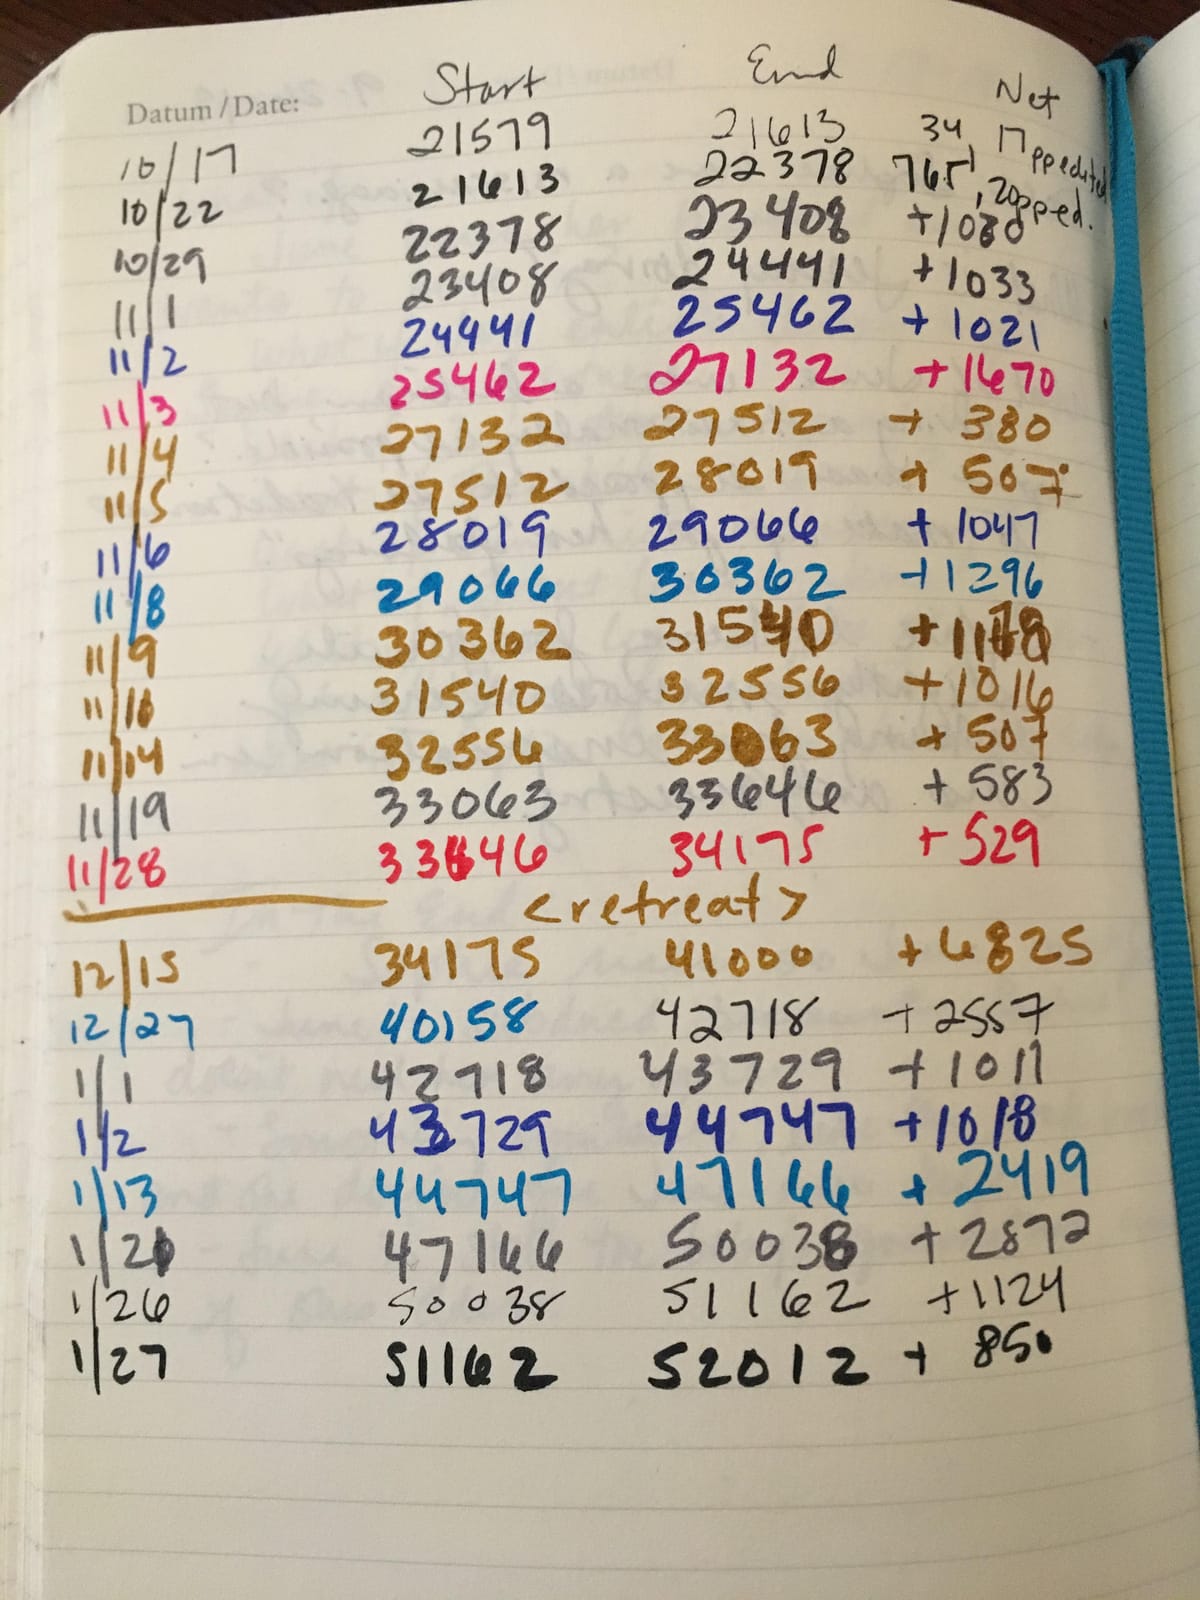 Datum / Date: Start End Net
10/17 21579 21613 34, 17 pp edited
10/22 21613 22378 765, 20pped.
10/29 22378 23408 +1030
11/1 23408 24441 +1033
11/2 24441 25462 +1021
11/3 25462 27132 +1670
11/4 27132 27512 + 380
11/5 27512 28019 + 507
11/6 28019 29066 + 1047
11/8 29066 30362 +1296
11/9 30362 31540 +1178
11/10 31540 32556 +1016
11/14 32556 33063 + 507
11/19 33063 33646 + 583
11/28 33646 34175 + 529
<retreat>
12/15 34175 41000 +6825
12/27 40158 42718 +2557
1/1 42718 43729 +1011
1/2 43729 44747 +1018
1/13 44747 47166 + 2419
1/20 47166 50038 + 2872
1/26 50038 51162 +1124
1/27 51162 52012 + 850